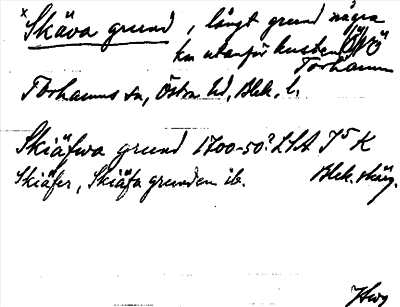 x Skäva grund, långt grund några
km utanför kusten ÖNÖ
Torhamn
Torhamns sn, Östra hd, Blek. l.
Skiäfwa grund 1700-50? LSA J5 K
Skiäfer, Skiäfa grunden ib. Blek. skärg.